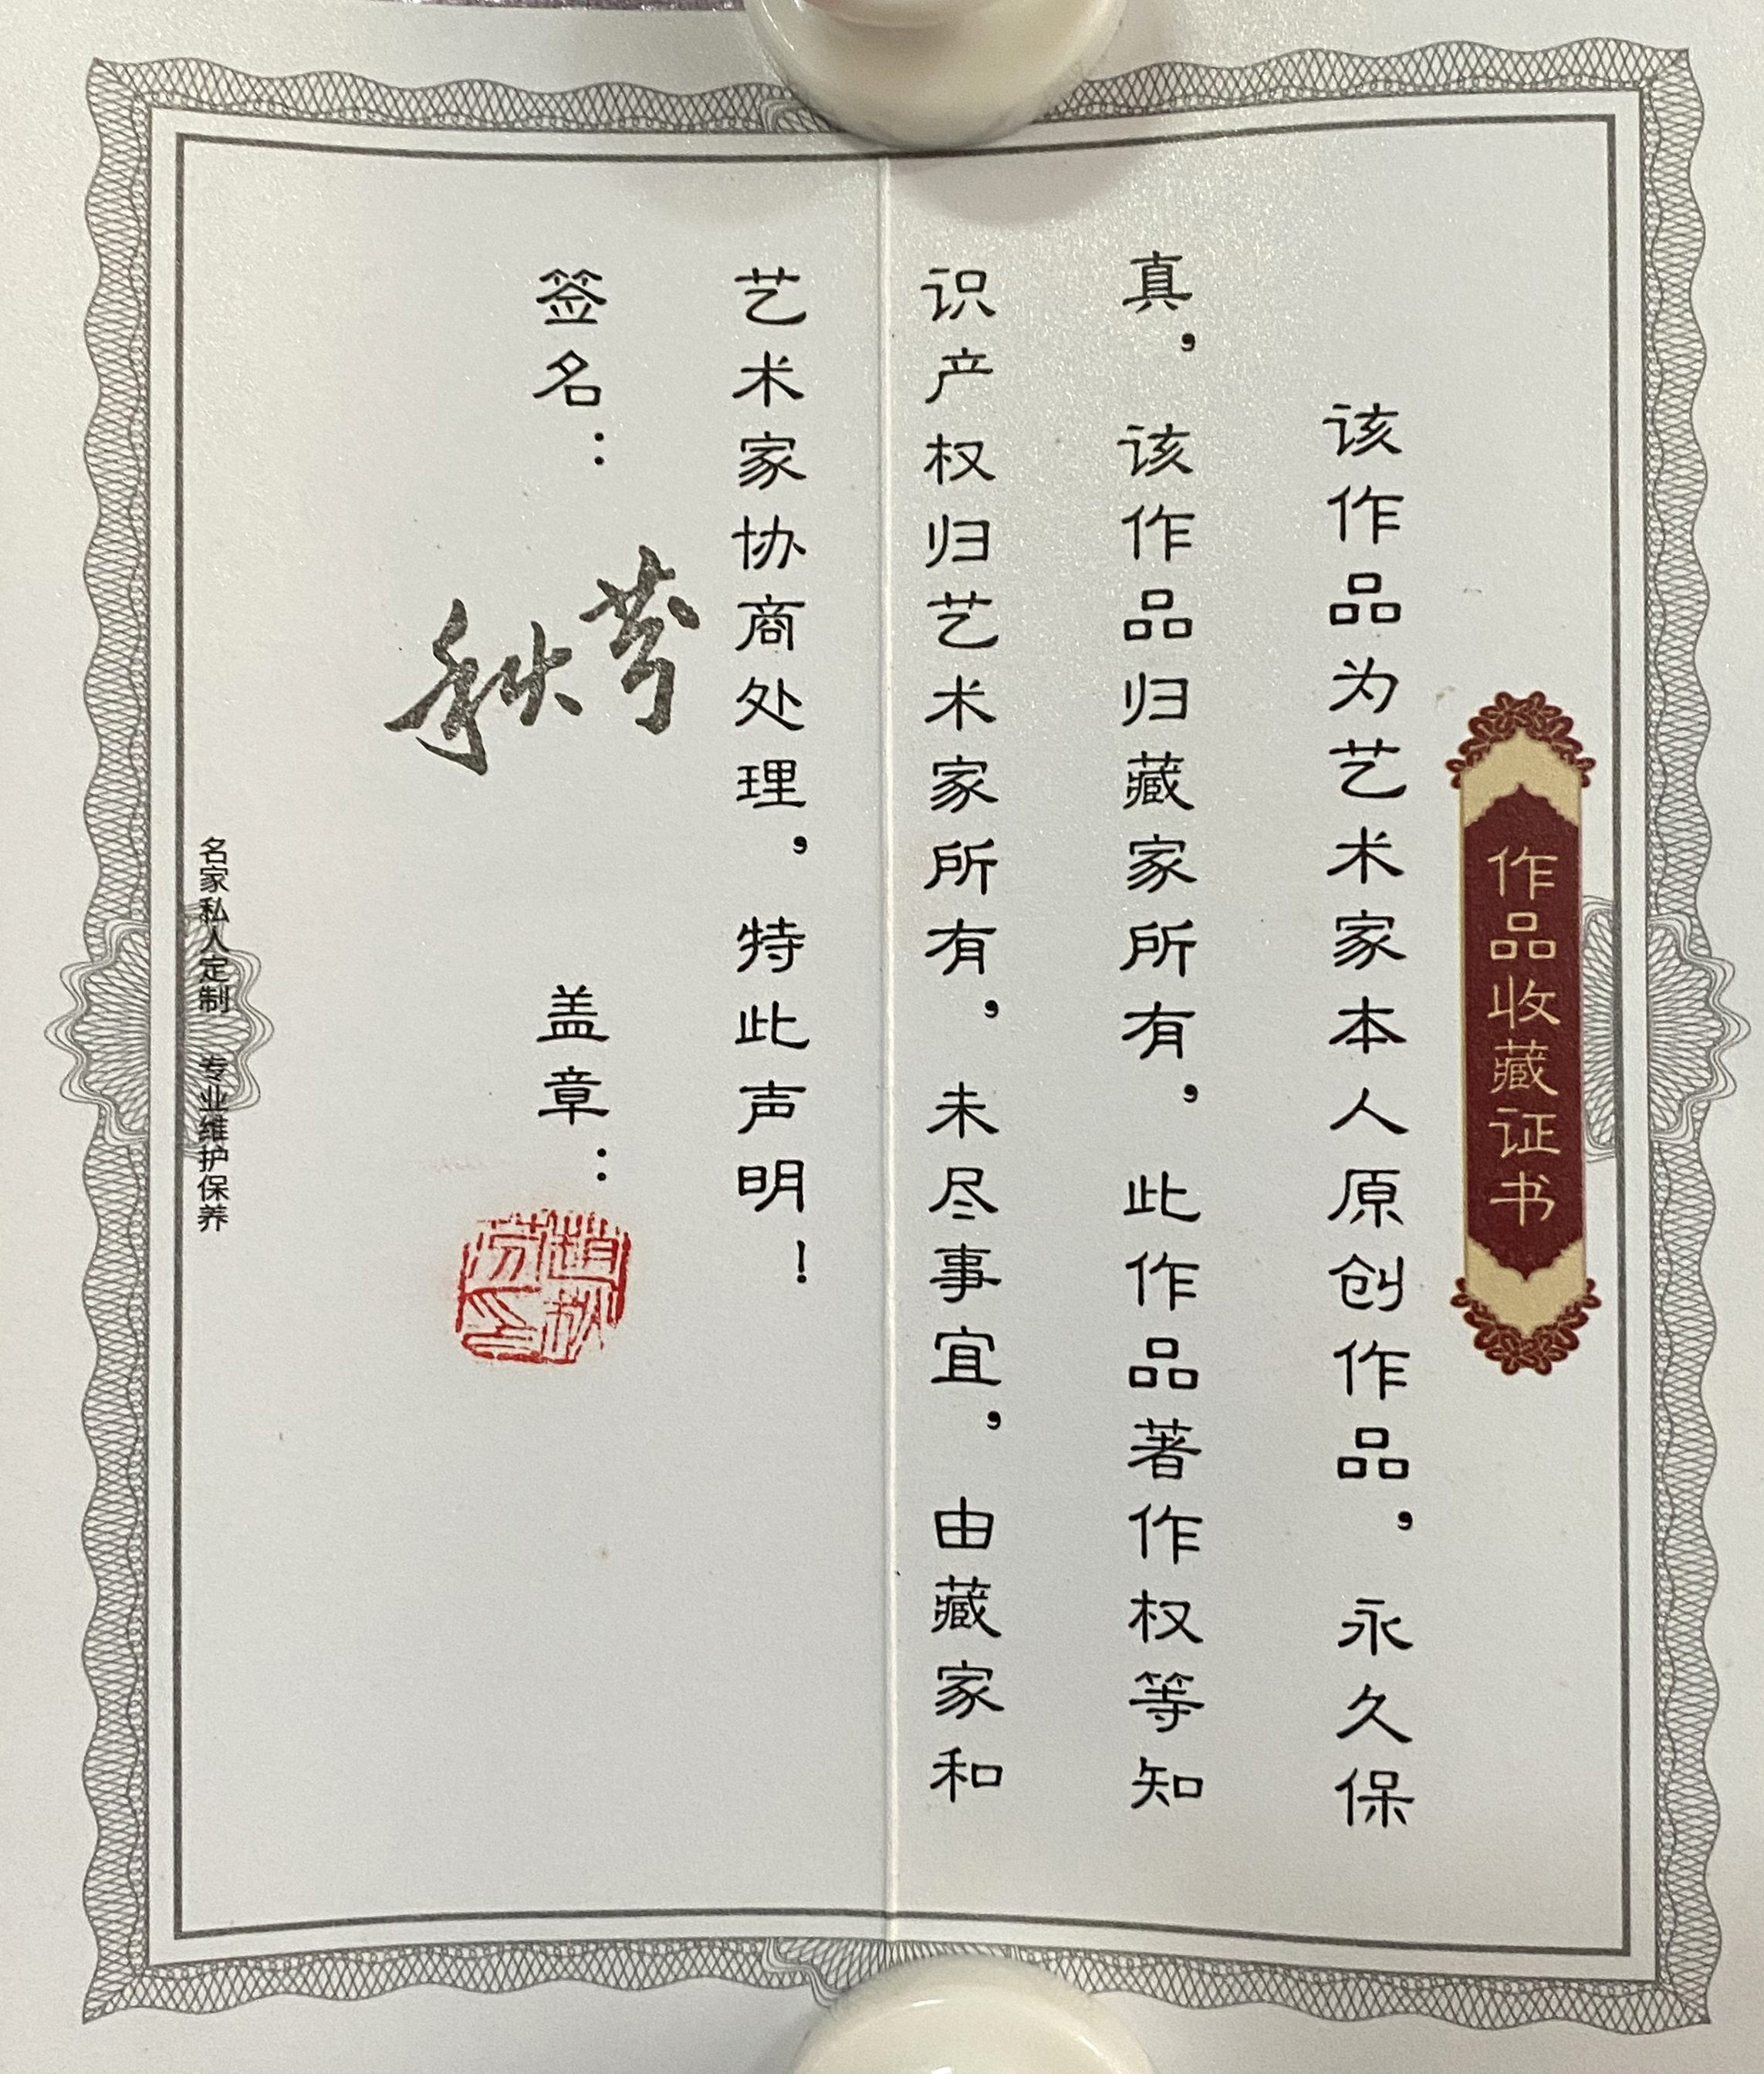 作品收藏证书
该作品为艺术家本人原创作品，永久保
真，该作品归藏家所有，此作品著作权等知
识产权归艺术家所有，未尽事宜，由藏家和
艺术家协商处理，特此声明！
签名：秋芬
盖章：
趙秋芬印
名家私人定制 专业维护保养